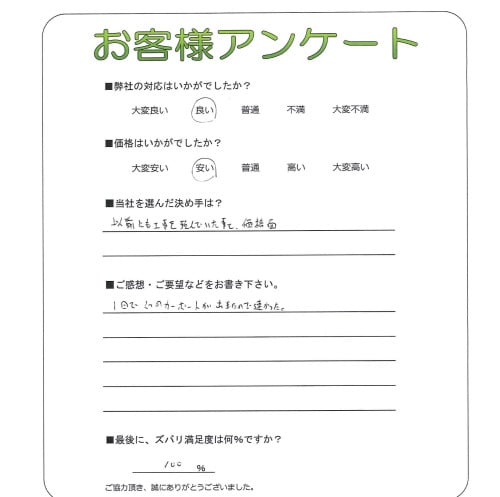 お客様アンケート
■弊社の対応はいかがでしたか？
大変良い 良い 普通 不満 大変不満
■価格はいかがでしたか？
大変安い 安い 普通 高い 大変高い
■当社を選んだ決め手は？
以前にも工事を頼んでいた事と、価格面
■ご感想・ご要望などをお書き下さい。
1日で2つのカーポートが出来たので速かった。
■最後に、ズバリ満足度は何%ですか？
100 %
ご協力頂き、誠にありがとうございました。